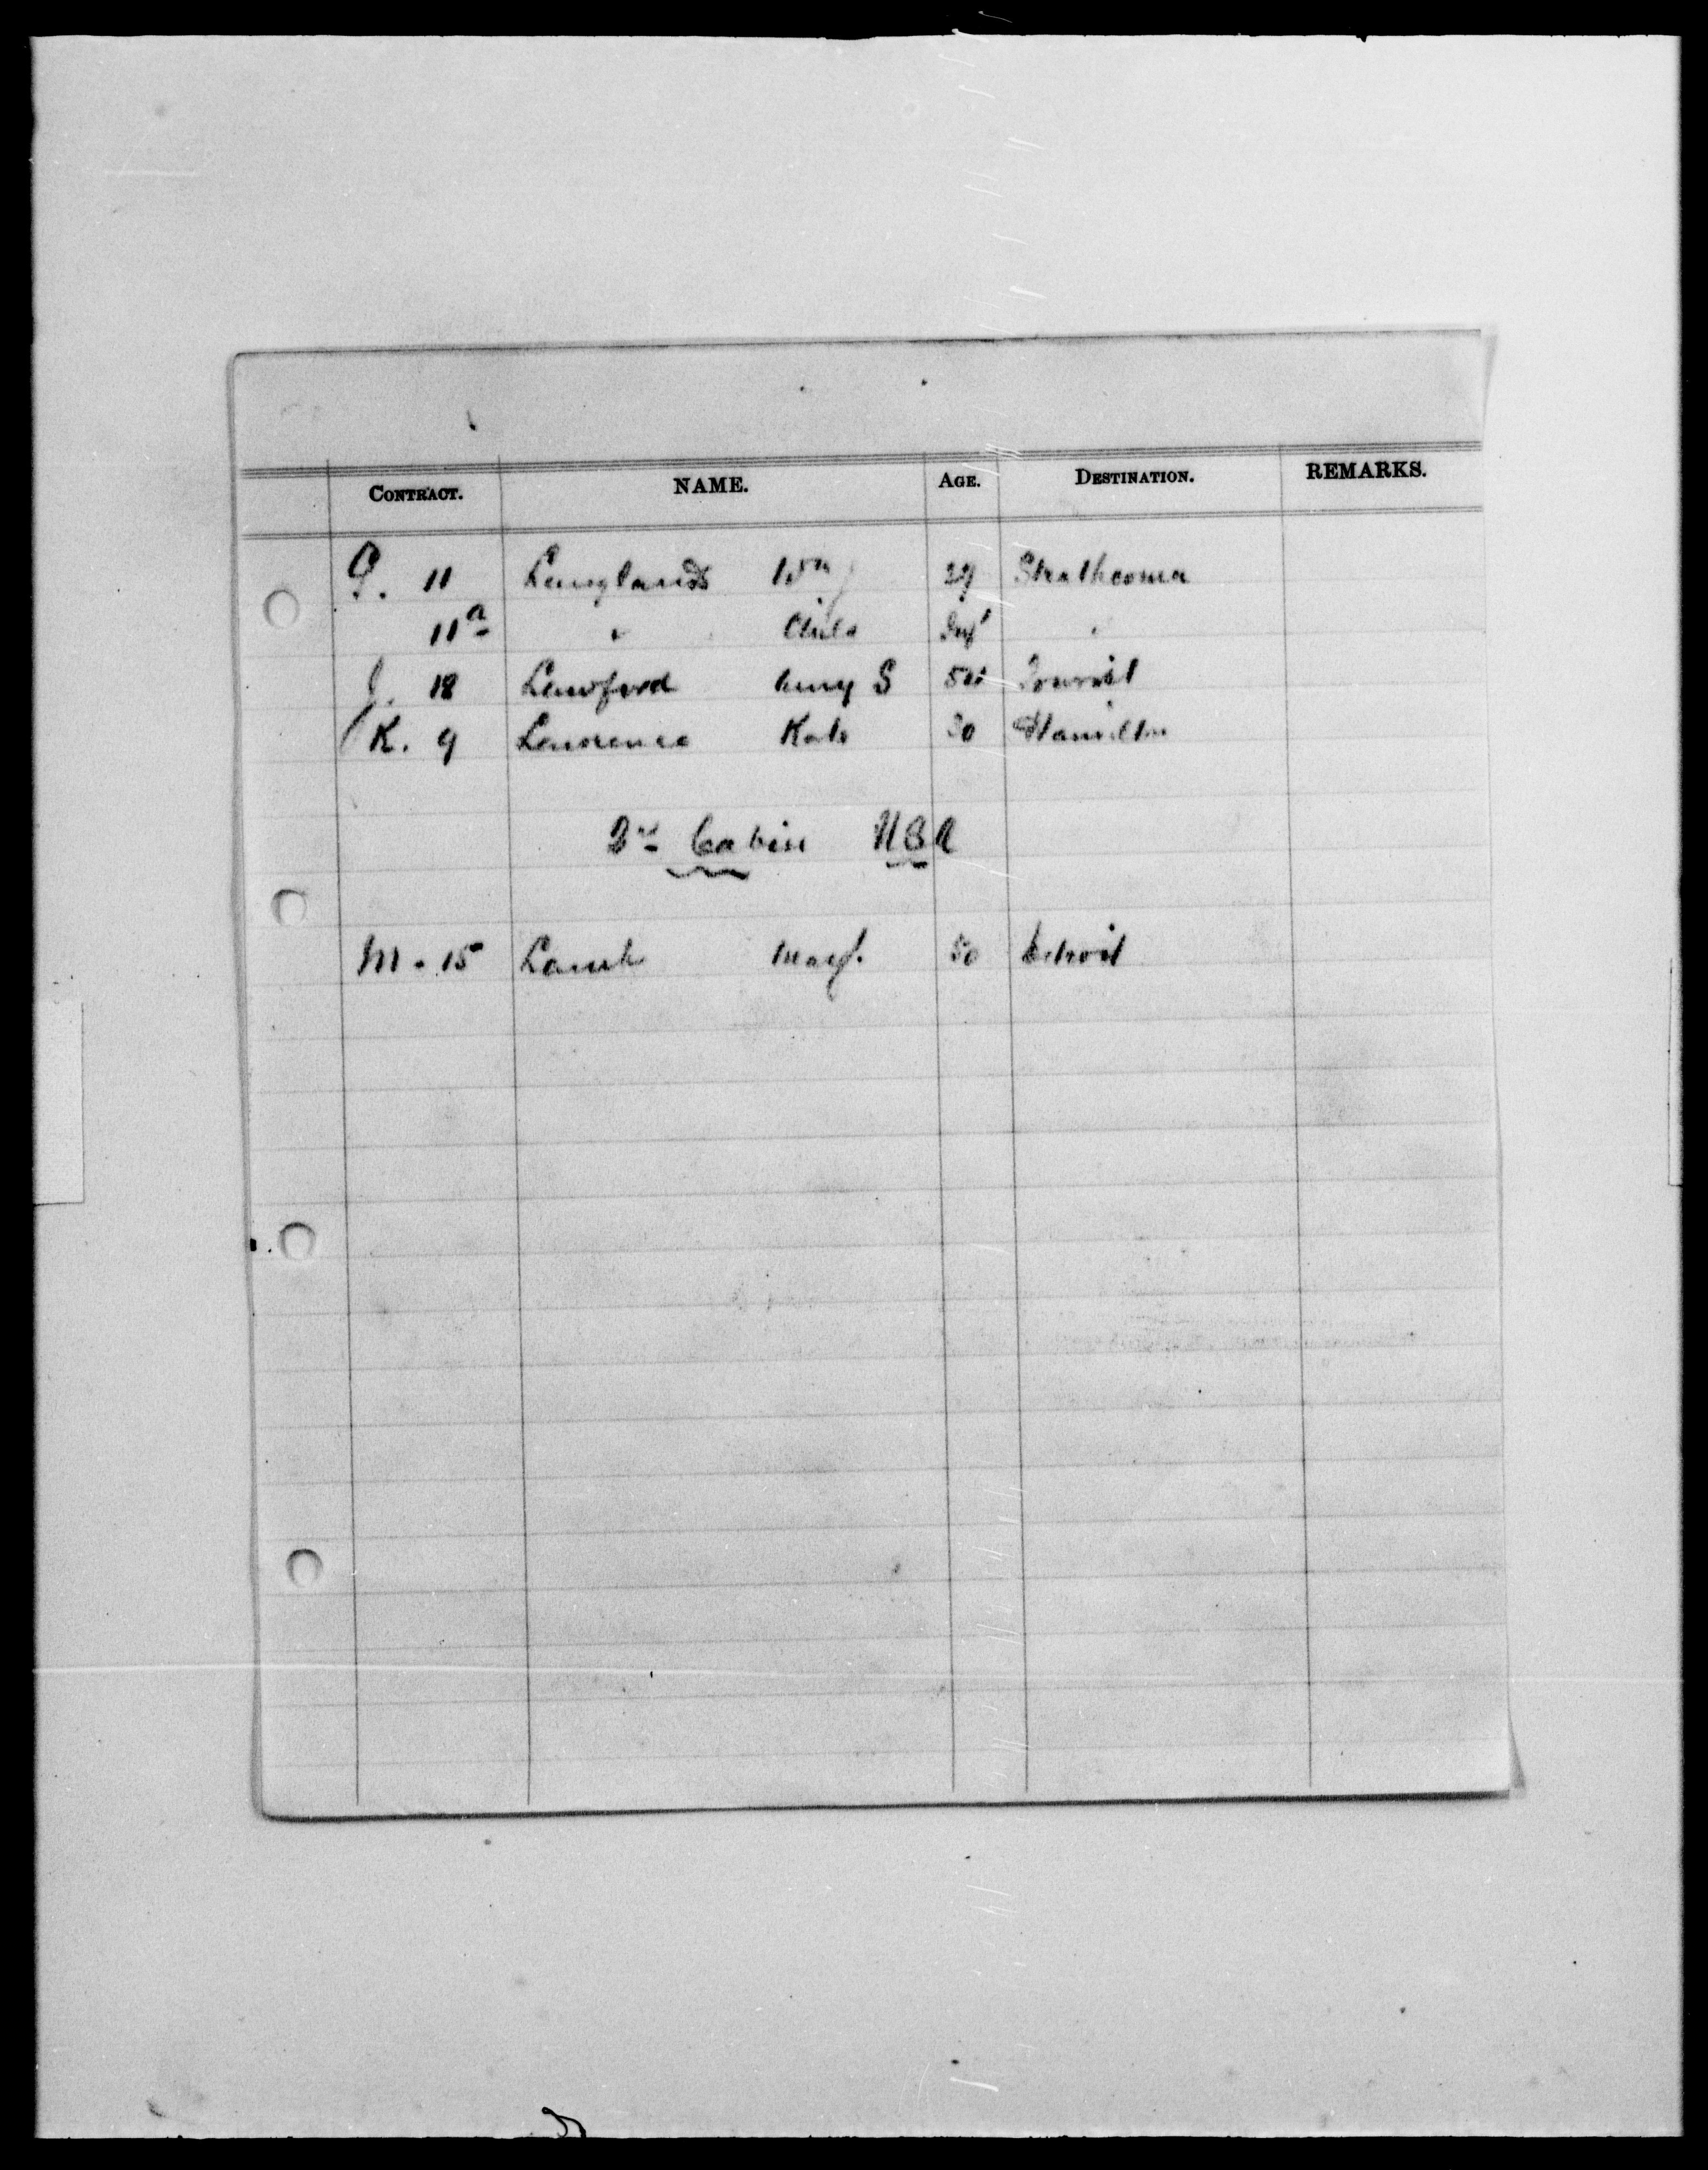 CONTRACT. NAME. AGE. DESTINATION. REMARKS.
G. 11 Langlands Wm 29 Strathcona
11a " Child Inf "
J. 18 Lawford Amy S Tourist
K. 9 Lawrence Kate 30 Hamilton
2nd Cabin USA
M. 15 Lamb Mary. 50 Detroit